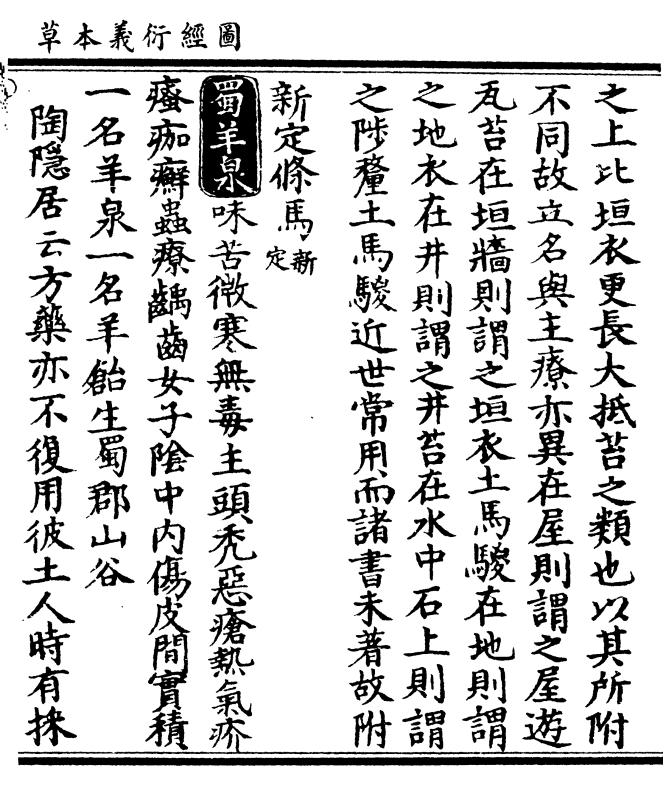 圖經衍義本草
之上比垣衣更長大抵苔之類也以其所附
不同故立名與主療亦異在屋則謂之屋遊
瓦苔在垣牆則謂之垣衣土馬騣在地則謂
之地衣在井則謂之井苔在水中石上則謂
之陟釐土馬騣近世常用而諸書未著故附
新定條馬新定
蜀羊泉味苦微寒無毒主頭禿惡瘡熱氣疥
瘙痂癬蟲療齲齒女子陰中内傷皮間實積
一名羊泉一名羊飴生蜀郡山谷
陶隱居云方藥亦不復用彼土人時有採